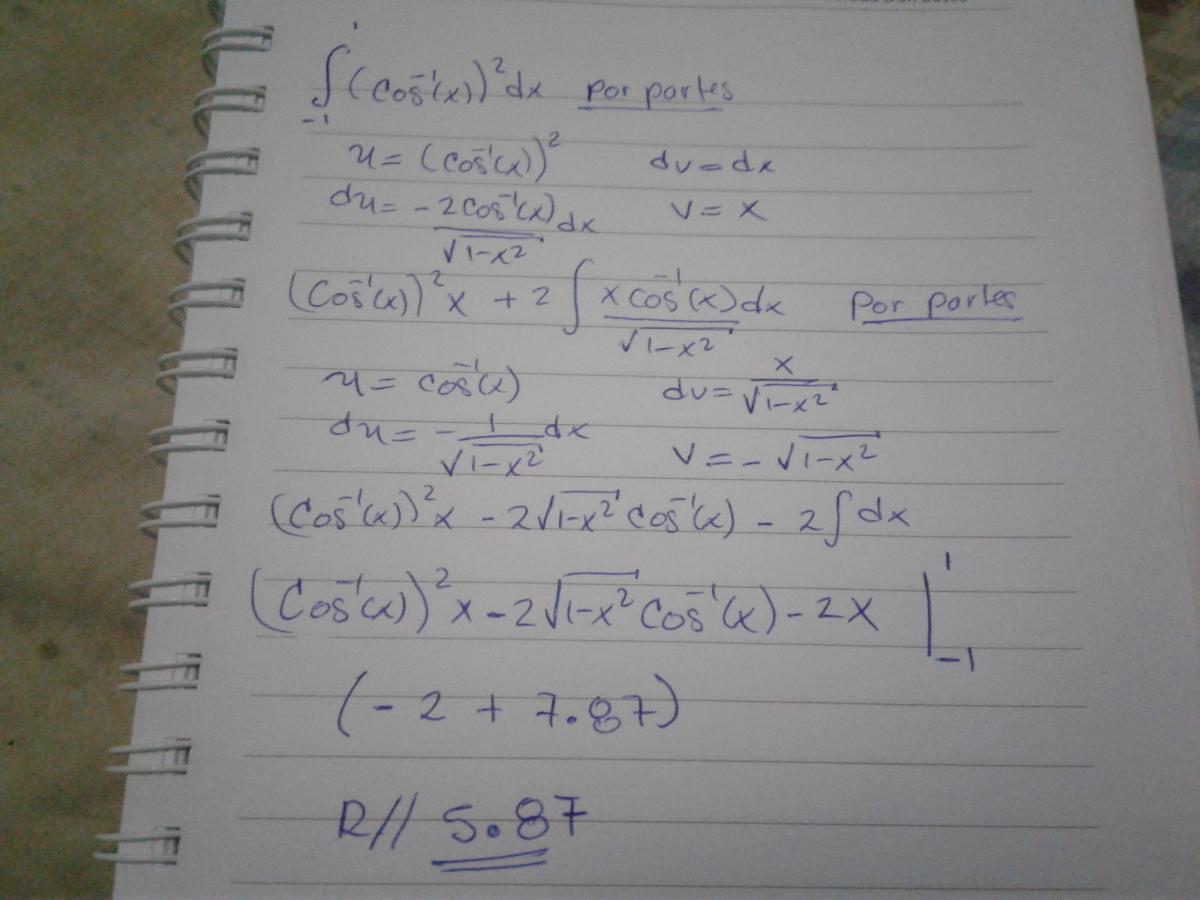 ∫₋₁¹ (Cos⁻¹(x))² dx por partes
u = (Cos⁻¹(x))² dv = dx
du = -2Cos⁻¹(x)/√(1-x²) dx v = x
(Cos⁻¹(x))² x + 2 ∫ x cos⁻¹(x)dx/√(1-x²) Por partes
u = cos⁻¹(x) dv = x/√(1-x²)
du = -1/√(1-x²) dx v = -√(1-x²)
(Cos⁻¹(x))² x - 2√(1-x²) cos⁻¹(x) - 2∫dx
(Cos⁻¹(x))² x - 2√(1-x²) Cos⁻¹(x) - 2x |₋₁¹
(-2 + 7.87)
R// 5.87